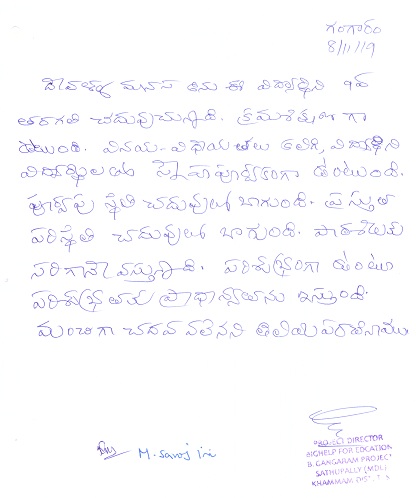 గంగారం
8/11/19
దీవెళ్ళ మానస అను ఈ విద్యార్థిని 9వ
తరగతి చదువుచున్నది. క్రమశిక్షణ గా
ఉంటుంది. వినయ-విధేయతలు కలిగి విద్యార్థిని
విద్యార్థులతో స్నేహపూర్వకంగా ఉంటుంది.
పూర్వపు స్థితి చదువులో బాగుంది. ప్రస్తుత
పరిస్థితి చదువులో బాగుంది. పాఠశాలకు
సరిగానే వస్తున్నది. పరిశుభ్రంగా ఉంటూ
పరిశుభ్రతకు ప్రాధాన్యతను ఇస్తుంది.
మంచిగా చదవ వలెనని తెలియపరచినాము
M. Saroj ini
PROJECT DIRECTOR
BIGHELP FOR EDCATION
B. GANGARAM PROJECT
SATHUPALLY (MDL)
KHAMMAM DIST.